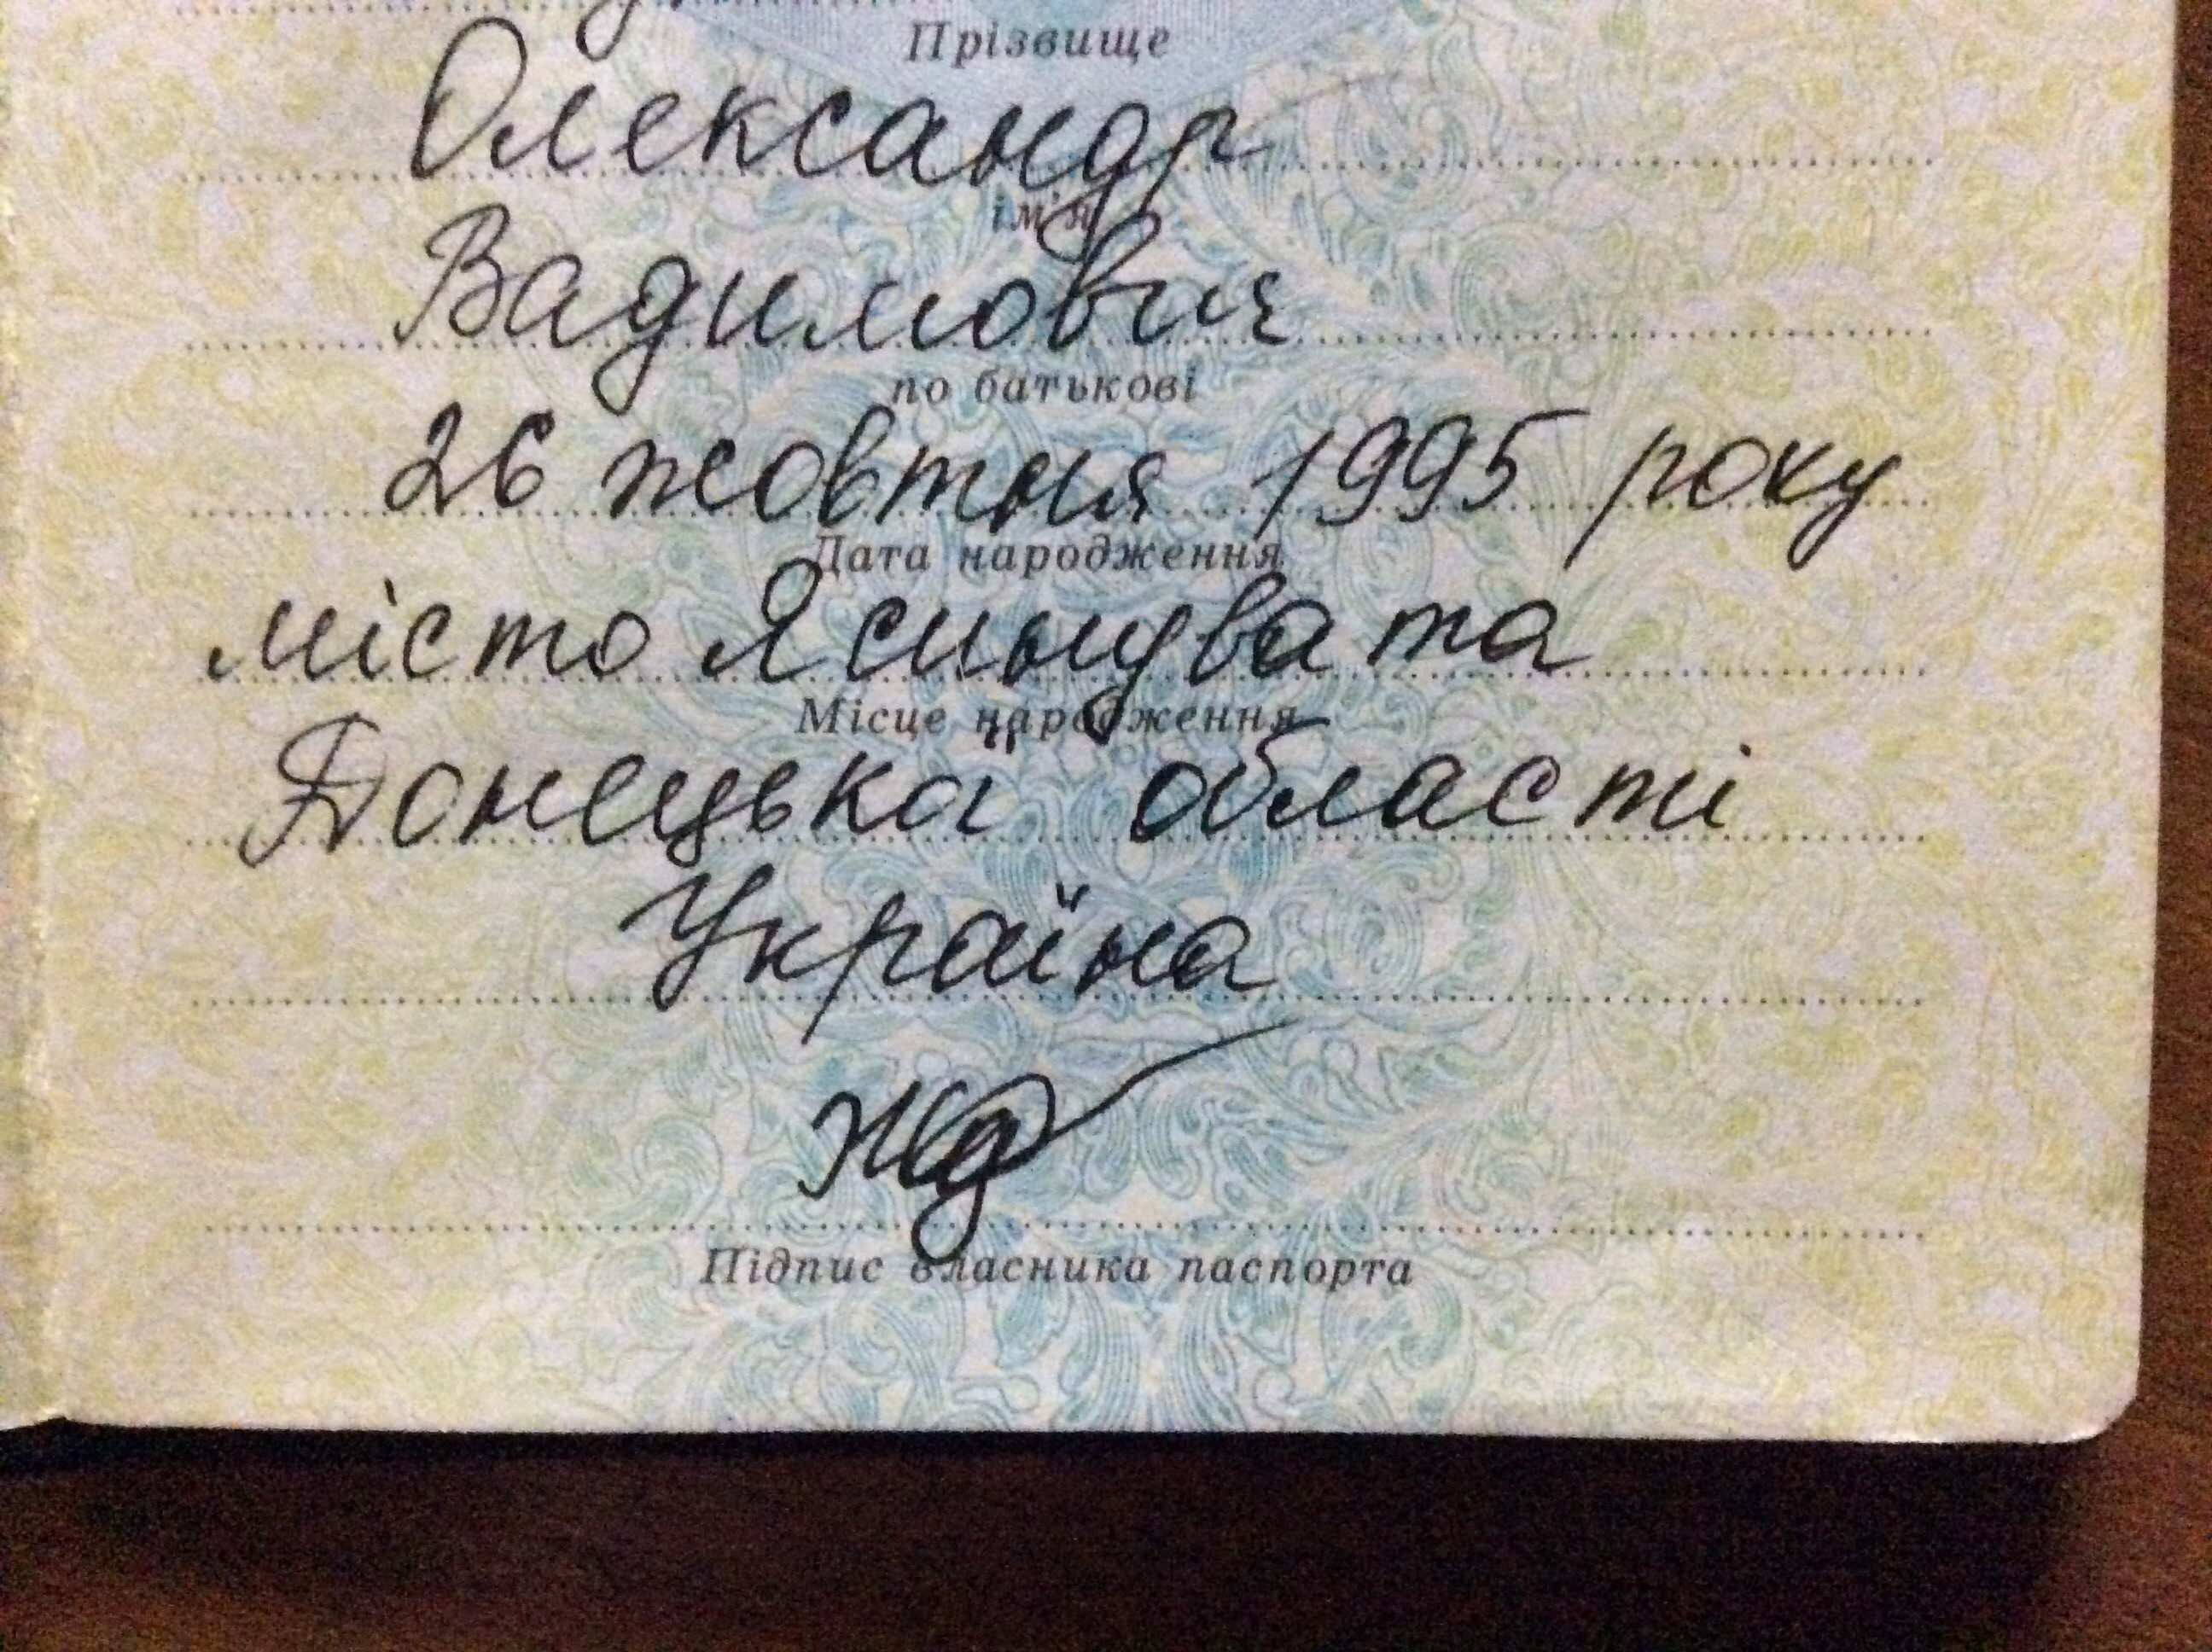 Прізвище
Олександр
ім'я
Вадимович
по батькові
26 жовтня 1995 року
Дата народження
місто Ясинувата
Місце народження
Донецької області
Україна
Підпис власника паспорта